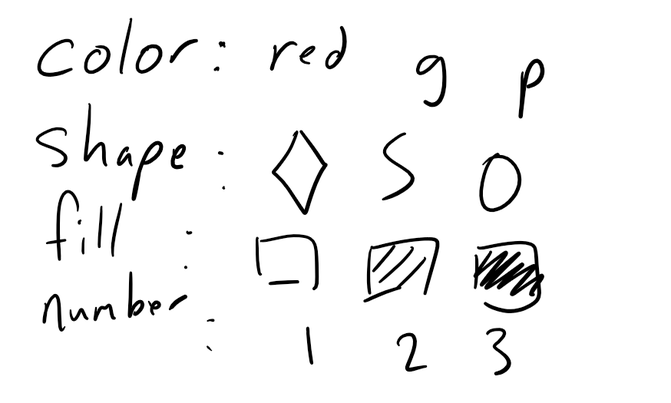 color: red g p
shape: S O
fill:
number: 1 2 3